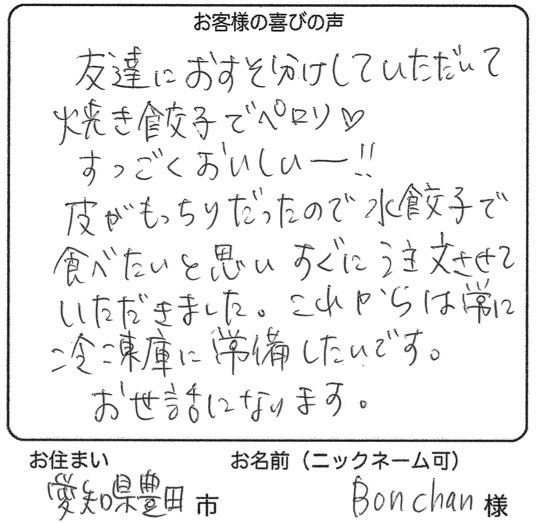 お客様の喜びの声
友達におすそ分けしていただいて
焼き餃子でペロリ♡
すっごくおいしいー!!
皮がもっちりだったので水餃子で
食べたいと思いすぐに注文させて
いただきました。これからは常に
冷凍庫に常備したいです。
お世話になります。
お住まい お名前（ニックネーム可）
愛知県豊田市 Bonchan様